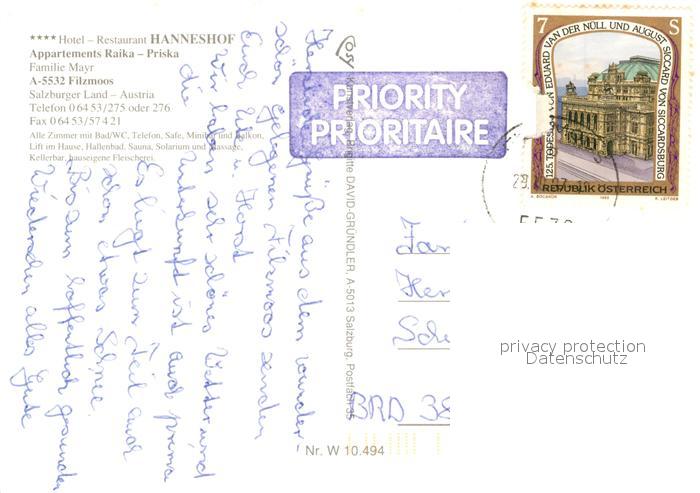 ★★★★ Hotel – Restaurant HANNESHOF
Appartements Raika – Priska
Familie Mayr
A-5532 Filzmoos
Salzburger Land – Austria
Telefon 0 64 53/275 oder 276
Fax 0 64 53/57 4 21
Alle Zimmer mit Bad/WC, Telefon, Safe, Balkon,
Lift im Hause, Hallenbad, Sauna, Solarium und Massage,
Kellerbar, hauseigene Fleischerei.
Grüße aus dem wunder-
schön gelegenen Filzmoos senden
Euch Horst
Wir haben sehr schönes Wetter und
die Unterkunft ist auch prima
Es liegt zum Teil auch
schon etwas Schnee.
Bis zum hoffentlich gesunden
Wiedersehen alles Gute
Brigitte DAVID-GRÜNDLER, A-5013 Salzburg, Postfach 35
PRIORITY
PRIORITAIRE
7 S
125. TODESTAG VON EDUARD VAN DER NÜLL UND AUGUST SICCARD VON SICCARDSBURG
REPUBLIK ÖSTERREICH
1993
Fam
Her
Sch
BRD 38
privacy protection
Datenschutz
Nr. W 10.494